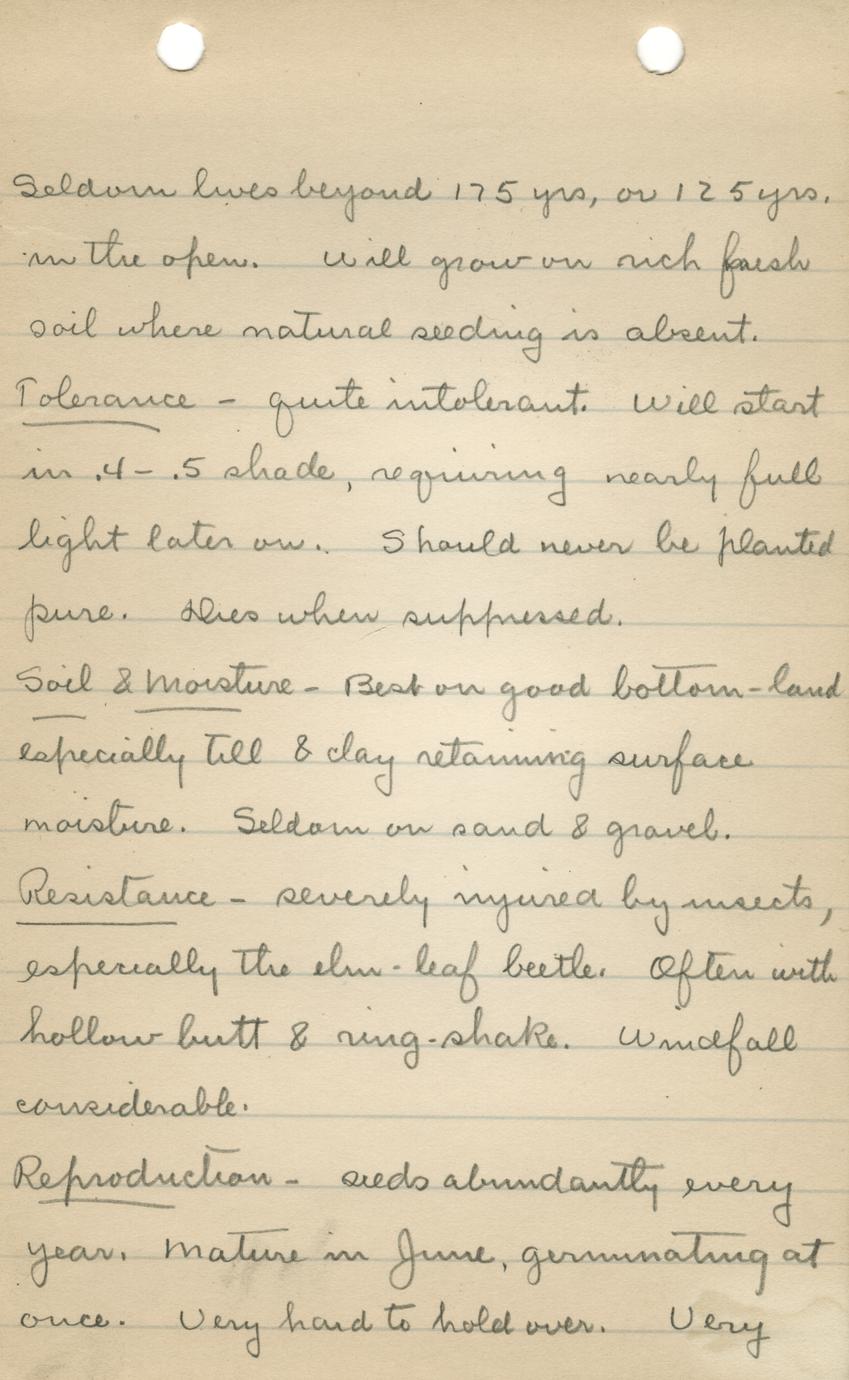 Seldom lives beyond 175 yrs, or 125 yrs.
in the open. Will grow on rich fresh
soil where natural seeding is absent.
Tolerance - quite intolerant. Will start
in .4 - .5 shade, requiring nearly full
light later on. Should never be planted
pure. Dies when suppressed.
Soil & Moisture - Best on good bottom-land
especially till & clay retaining surface
moisture. Seldom on sand & gravel.
Resistance - severely injured by insects,
especially the elm-leaf beetle. Often with
hollow butt & ring-shake. Windfall
considerable.
Reproduction - seeds abundantly every
year. Mature in June, germinating at
once. Very hard to hold over. Very